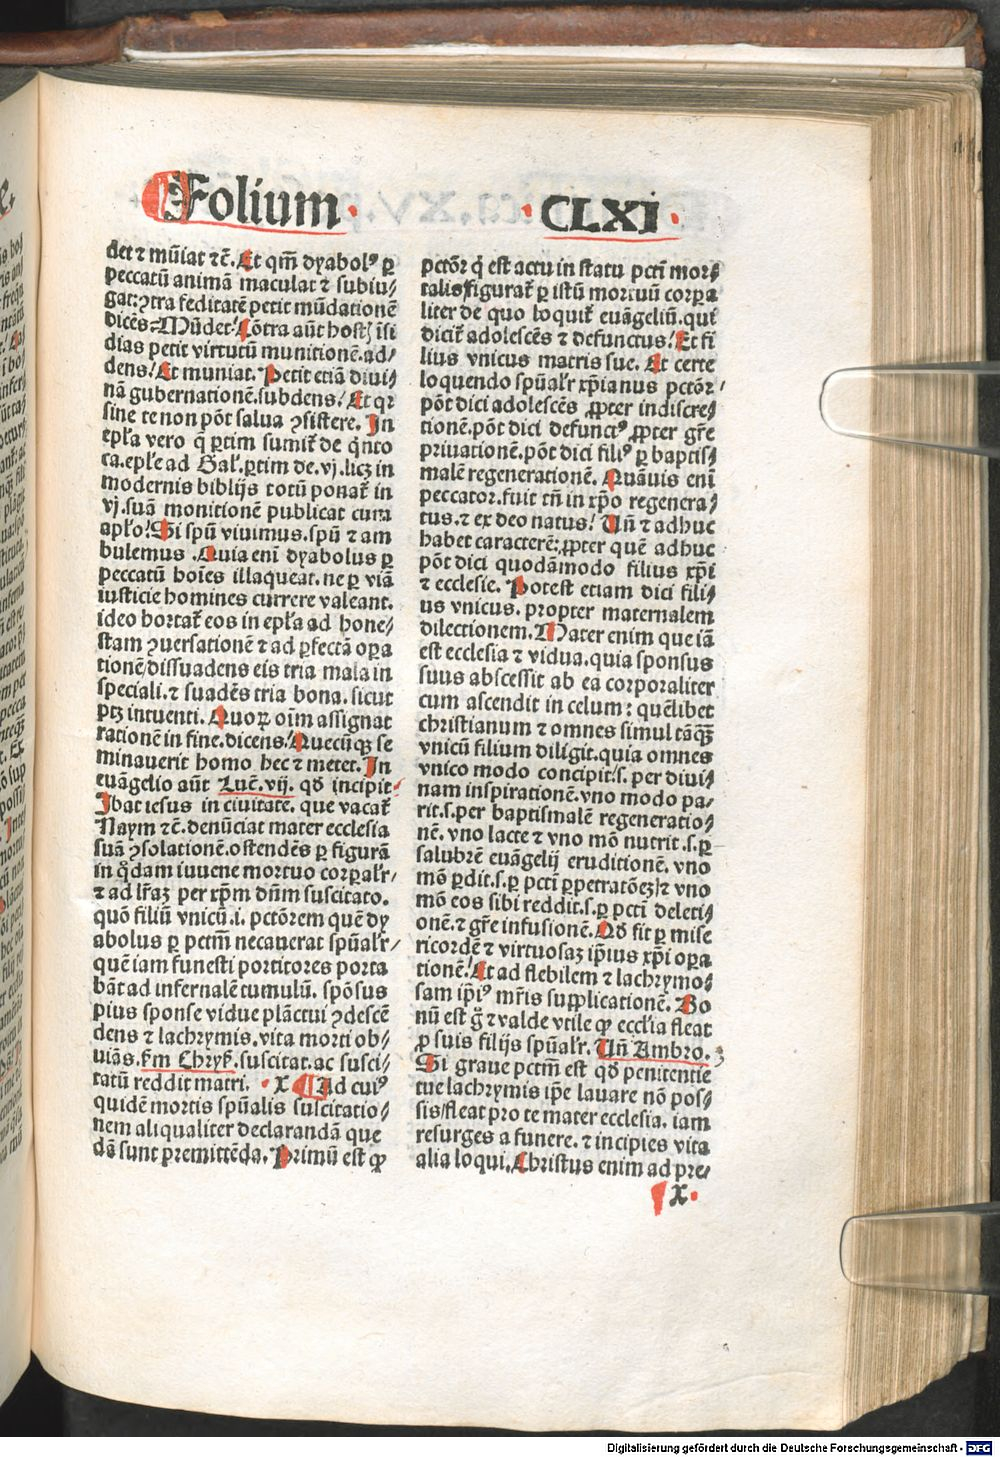 Folium · CLXI ·
det ⁊ mūiat ⁊c̄. Et qm̄ dyabolꝰ ꝑ
peccatū animā maculat ⁊ subiu-
gat: ꝯtra feditatē petit mūdationē
dicēs= Mūdet! Cōtra aūt hostꝫ īsi
dias petit virtutū munitionē. ad/
dens! Et muniat. Petit etiā diui/
nā gubernationē. subdens! Et qr
sine te non pōt salua ꝯsistere. In
ep̄la vero q̄ ꝑtim sumit̄ de q̇nto
ca. ep̄le ad Gal̄. ꝑtim de. vj. licꝫ in
modernis biblijs totū ponat̄ in
vj. suā monitionē publicat cum
ap̄lo! Si spū viuimus. spū ⁊ am
bulemus. Quia enī dyabolus ꝑ
peccatū hoīes illaqueat. ne ꝑ viā
iusticie homines currere valeant.
ideo hortat̄ eos in ep̄la ad hone/
stam ꝯuersationē ⁊ ad ꝑfectā oꝑa
tionē/dissuadens eis tria mala in
speciali. ⁊ suadēs tria bona. sicut
ptꝫ intuenti. Quoꝝ oīm assignat
rationē in fine. dicens! Quecūqꝫ se
minauerit homo hec ⁊ metet. In
euāgelio aūt Luc̄. vij. qđ incipit
Ibat iesus in ciuitatē. que vocat̄
Naym ⁊c̄. denūciat mater ecclesia
suā ꝯsolationē. ostendēs ꝑ figurā
in q̇dam iuuene mortuo corꝑal̄r/
⁊ ad lr̄aꝫ per xp̄m dn̄m suscitato.
quō filiū vnicū. i. pctōrem quē dy
abolus ꝑ pctm̄ necauerat spūal̄r/
quē iam funesti portitores porta
bāt ad infernalē tumulū. spōsus
pius sponse vidue plāctui ꝯdescē
dens ⁊ lachrymis. vita morti ob/
uiās. fm̄ Chryß. suscitat. ac susci/
tatū reddit matri. · X Ad cuiꝰ
quidē mortis spūalis suscitatio/
nem aliqualiter declarandā que
dā sunt p̄remittēda. Primū est ꝙ
pctōr q̇ est actu in statu pcti mor/
talis/figurat̄ ꝑ istū mortuū corꝑa
liter de quo loquit̄ euāgeliū. qui
dicit̄ adolescēs ⁊ defunctus! Et fi
lius vnicus matris sue. Et certe
loquendo spūal̄r xp̄ianus pctōr/
pōt dici adolescēs ꝓpter indiscre/
tionē. pōt dici defunctꝰ ꝓpter gr̄e
priuationē. pōt dici filiꝰ ꝑ baptis/
malē regenerationē. Quāuis enī
peccator. fuit tn̄ in xp̄o regenera/
tus. ⁊ ex deo natus! Un̄ ⁊ adhuc
habet caracterē: ꝓpter quē adhuc
pōt dici quodāmodo filius xp̄i
⁊ ecclesie. Potest etiam dici fili/
us vnicus. propter maternalem
dilectionem. Mater enim que iā
est ecclesia ⁊ vidua. quia sponsus
suus abscessit ab ea corporaliter
cum ascendit in celum: quēlibet
christianum ⁊ omnes simul tāqꝫ
vnicū filium diligit. quia omnes
vnico modo concipit. s. per diui/
nam inspirationē. vno modo pa/
rit. s. per baptismalē regeneratio/
nē. vno lacte ⁊ vno mō nutrit. s. ꝑ
salubrē euāgelij eruditionē. vno
mō ꝑdit. s. ꝑ pcti ꝑpetratōeꝫ/ ⁊ vno
mō eos sibi reddit. s. ꝑ pcti deleti/
onē. ⁊ gr̄e infusionē. Qđ fit ꝑ mise
ricordē ⁊ virtuosaꝫ ip̄ius xp̄i oꝑa
tionē! Et ad flebilem ⁊ lachrymo/
sam ip̄iꝰ mr̄is supplicationē. Bo
nū est g̊ ⁊ valde vtile ꝙ eccl̄ia fleat
ꝓ suis filijs spūal̄r. Un̄ Ambro.
Si graue pctm̄ est qđ penitentie
tue lachrymis ip̄e lauare nō pos/
sis/fleat pro te mater ecclesia. iam
resurges a funere. ⁊ incipies vita
alia loqui. Christus enim ad pre/
X
Digitalisierung gefördert durch die Deutsche Forschungsgemeinschaft - DFG